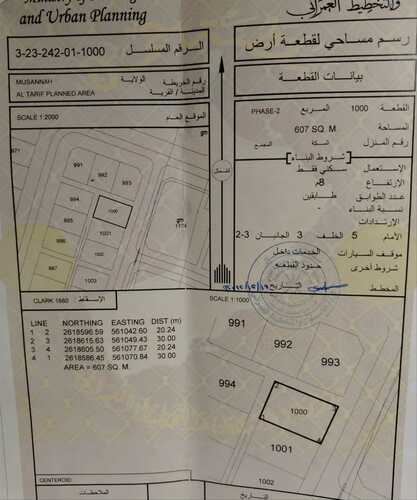 and Urban Planning
والتخطيط العمراني
3-23-242-01-1000
الـرقم المسلسل
رسم مساحي لقطعة أرض
MUSANNAH
الولاية
AL TARIF PLANNED AREA
رقم الخريطة
المدينة / القرية
بيانات القطعة
SCALE 1:2000
الموقع العام
PHASE-2
المربع
1000
القطعة
607 SQ. M.
المساحة
رقم المنزل
السكة
المجمع
شروط البناء
الإستعمال
سكني فقط
الإرتفاع
8م
عدد الطوابق
طابقين
نسبة البناء
-
الإرتدادات
الأمام 5 الخلف 3 الجانبان 2-3
موقف السيارات
الخدمات داخل
حدود القطعه
شروط أخرى
المخطط
التاريخ
الشمال
971
991
992
993
994
1000
996
997
1001
1002
1003
1174
CLARK 1880
الإسقاط :
SCALE 1:1000
LINE NORTHING EASTING DIST (m)
1 2 2618596.59 561042.60 20.24
2 3 2618615.63 561049.43 30.00
3 4 2618605.50 561077.67 20.24
4 1 2618586.45 561070.84 30.00
AREA = 607 SQ. M.
991
992
993
994
1000
1001
1002
CENTEROID:
الملاحظات:
التاريخ